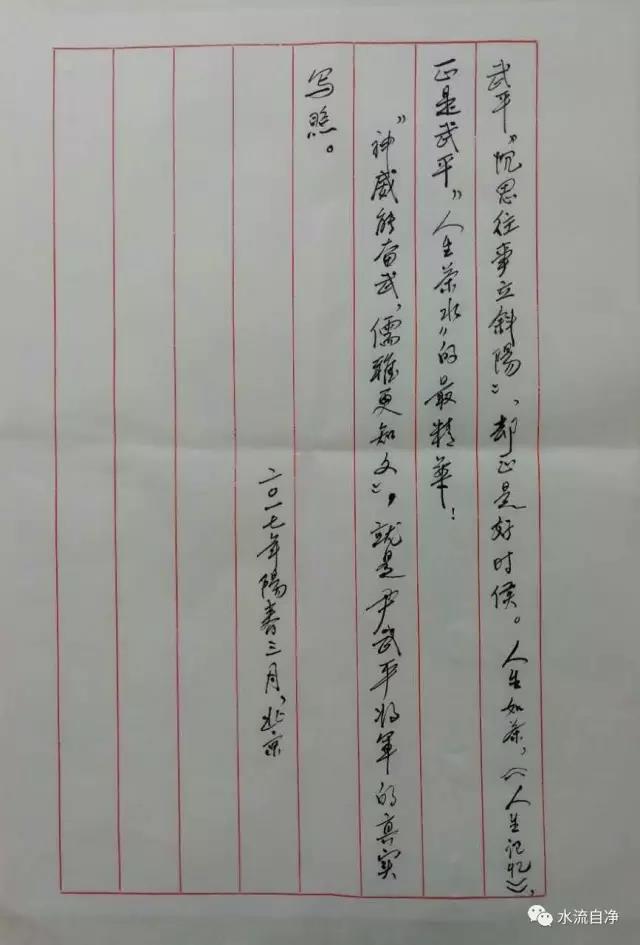 武平“沉思往事立斜陽”，却正是好时候。人生如茶，《人生记忆》，
正是武平“人生茶水”的最精華！
“神威能奋武，儒雅更知文”，就是尹武平将军的真实
写照。
二〇一七年陽春三月，北京
水流自净